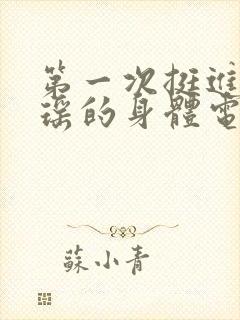 第一次挺進
瑤的身體電
蘇小青